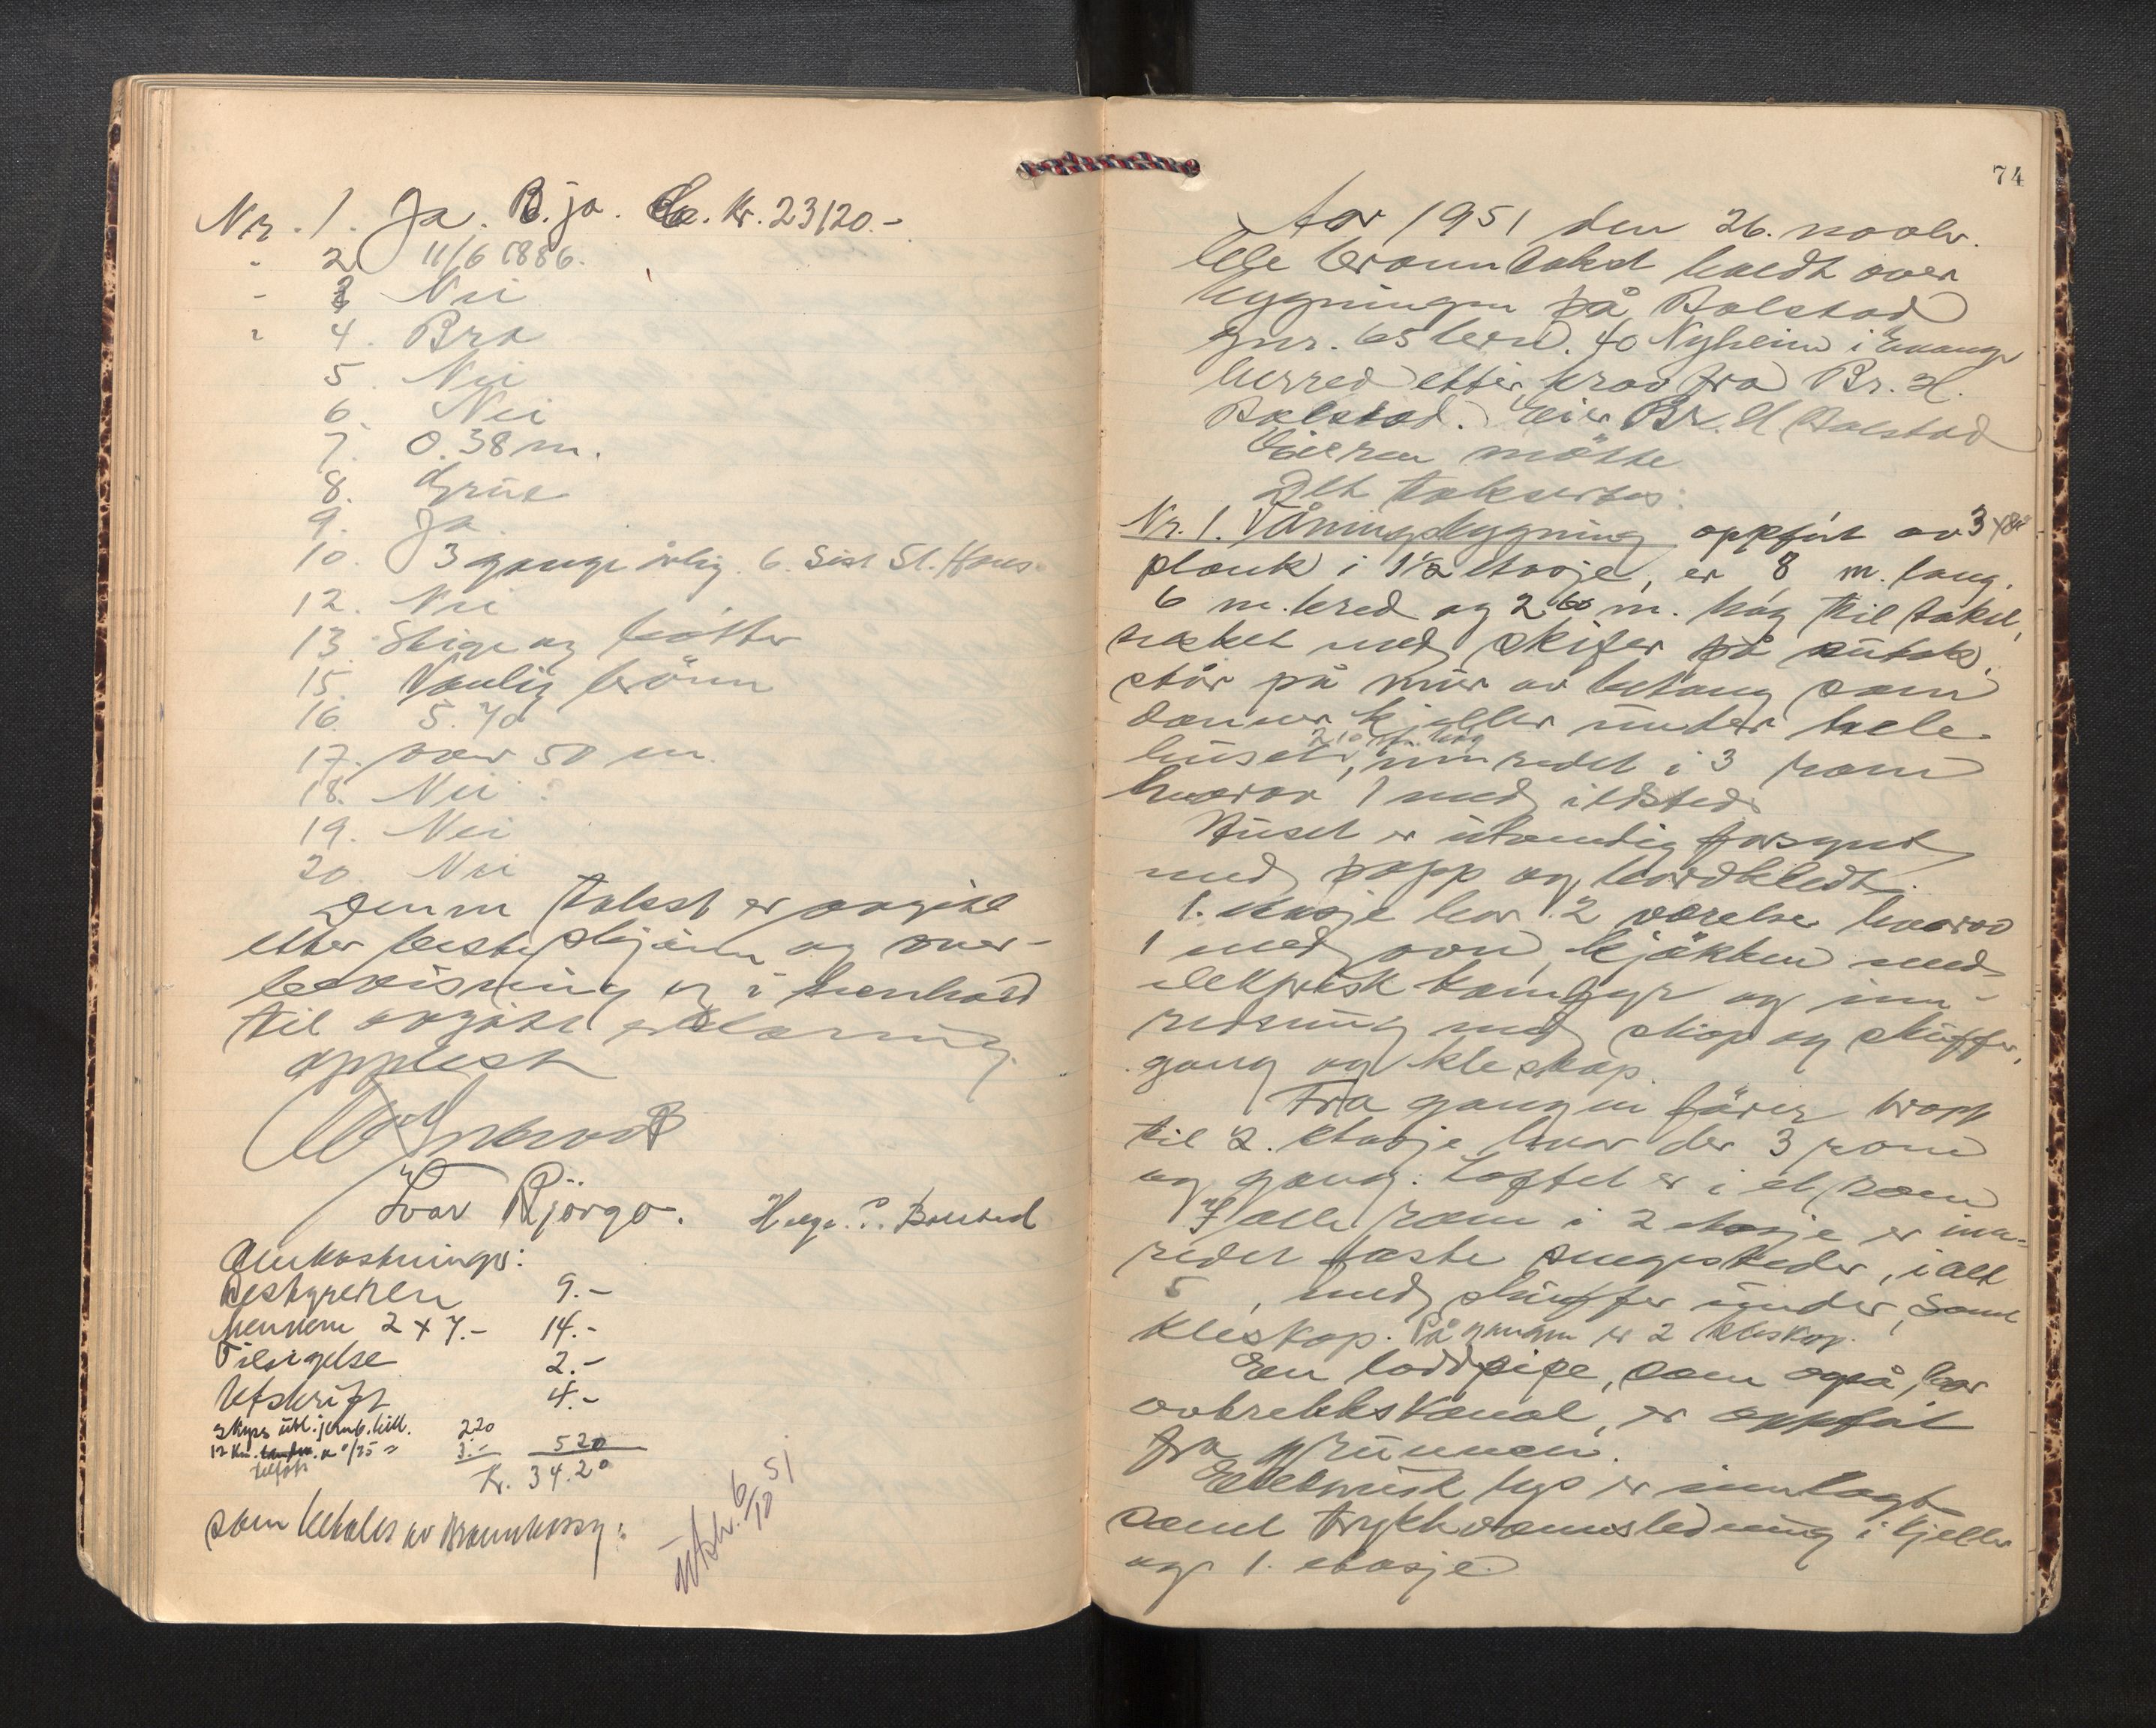 Nr. 1. Ja. B. ja. Ca. Kr. 23120.-
" 2 11/6 1886.
" 3 Nei
" 4. Bra
5. Nei
6. Nei
7. 0.38 m.
8. Grue
9. Ja
10. 3 gange årlig. 6. Sist St. Hans.
12. Nei
13. Stige og bøtter
15. Vanlig brönn
16. 5.70
17. over 50 m.
18. Nei
19. Nei
20. Nei
Denne takst er avgitt
etter beste skjönn og over-
bevisning og i henhold
til avgitt erklæring.
opplest
Ivar Björgo. Helge Bolstad
Omkostninger:
Bestyreren 9.-
Mennene 2 x 7.- 14.-
Tilsigelse 2.-
Utskrift 4.-
Skyss inkl. jernb. bill. 2.20
12 km. a 0/25 = 3.- 5 20
Kr. 34.20
som betales av Brannkassen.
Utskr. 6/12 51
74
År 1951 den 26. novbr.
ble branntakst holdt over
bygningen på Bolstad
gnr. 65 brn. 40 Nyheim i Evanger
herred etter krav fra Br. H.
Bolstad. Eier Br. H Bolstad
Eieren møtte
Det taksertes:
Nr. 1. Våningsbygning oppført av 3 x 8"
plank i 1½ etasje, er 8 m. lang,
6 m. bred og 2.60 m. høg til taket,
tekket med skifer på sutak.
står på mur av betong som
danner kjeller under hele
2.10 m. høg
huset, innredet i 3 rom
hvorav 1 med ildsted.
Huset er utvendig forsynt
med papp og bordkledt.
1. etasje har 2 værelse hvorav
1 med ovn, kjøkken med
elektrisk komfyr og inn-
redning med skap og skuffer,
gang og kleskap.
Fra gangen fører trapp
til 2. etasje hvor der 3 rom
og gang. Loftet er i et rom
I alle rom i 2 etasje er inn-
redet faste sengesteder, i alt
5, med skuffer under, samt
kleskap. På gangen er 2 kleskap.
En loddpipe, som også har
avtrekkskanal, er oppført
fra grunnen.
Elektrisk lys er innlagt
samt trykkvannsledning i kjeller
og 1. etasje